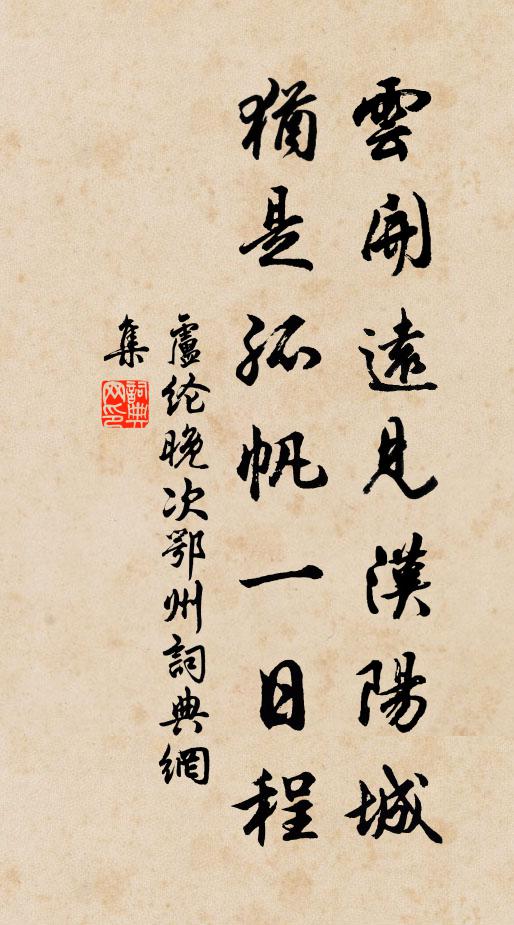 雲開遠見漢陽城
猶是孤帆一日程
盧纶晚次鄂州詞典網
集
詞典
网印